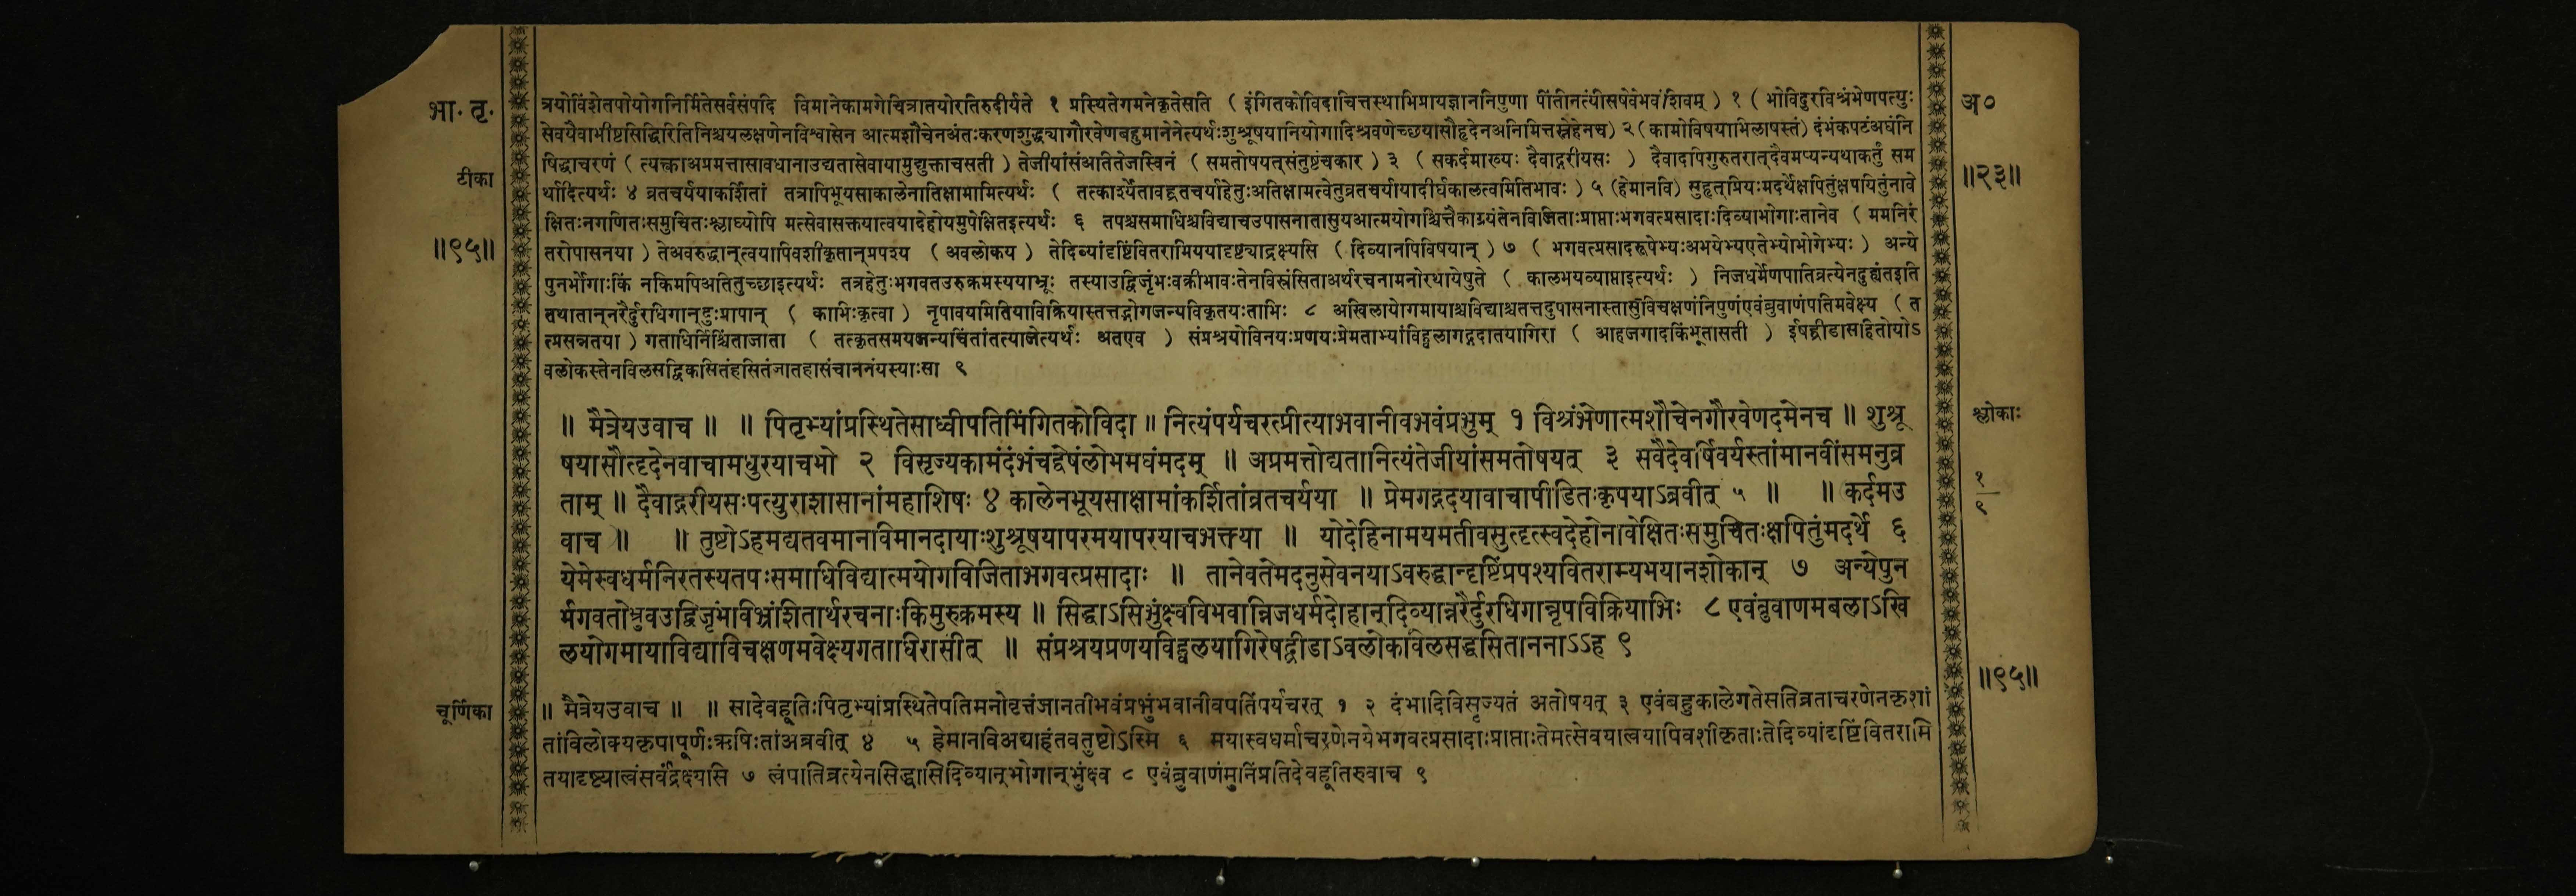 भा. तृ.
टीका
॥९५॥
त्रयोविंशेतपोयोगनिर्मितेसर्वसंपदि विमानेकामगेचित्रातयोरतिरुदीर्यते १ प्रस्थितेगमनेकृतेसति ( इंगितकोविदाचित्तस्थाभिप्रायज्ञाननिपुणा पतिंनीत्यंसिषेवेभवंशिवम् ) १ ( भोविदुरविश्रंभेणपत्युः
सेवयैवाभीष्टसिद्धिरितिनिश्चयलक्षणेनविश्वासेन आत्मशौचेनअंतःकरणशुद्ध्यागौरवेणबहुमानेनेत्यर्थःशुश्रूषयानियोगादिश्रवणेच्छयासौहृदेनअनिमित्तस्नेहेनच) २ (कामोविषयाभिलाषस्तं) दंभंकपटंअघंनि
षिद्धाचरणं ( त्यक्त्वाअप्रमत्तासावधानाउद्यतासेवायामुद्युक्ताचसती ) तेजीयांसंअतितेजस्विनं ( समतोषयत्संतुष्टंचकार ) ३ ( सकर्दमाख्यः दैवाद्गरीयसः ) दैवादपिगुरुतरात्दैवमप्यन्यथाकर्तुं सम
र्थादित्यर्थः ४ व्रतचर्ययाकर्शितां तत्रापिभूयसाकालेनातिक्षामामित्यर्थः ( तत्कार्श्येतावद्व्रतचर्याहेतुःअतिक्षामत्वेतुव्रतचर्यायादीर्घकालत्वमितिभावः ) ५ (हेमानवि) सुहृत्प्रियःमदर्थेक्षपितुंक्षपयितुंनावे
क्षितःनगणितःसमुचितःश्लाघ्योपि मत्सेवासक्तयात्वयादेहोयमुपेक्षितइत्यर्थः ६ तपश्चसमाधिश्चविद्याचउपासनातासुयआत्मयोगश्चित्तैकाग्र्यंतेनविजिताःप्राप्ताःभगवत्प्रसादाःदिव्याभोगाःतानेव ( ममनिरं
तरोपासनया ) तेअवरुद्धान्त्वयापिवशीकृतान्प्रपश्य ( अवलोकय ) तेदिव्यांदृष्टिंवितरामिययादृष्ट्याद्रक्ष्यसि ( दिव्यानपिविषयान् ) ७ ( भगवत्प्रसादरूपेभ्यःअभयेभ्यएतेभ्योभोगेभ्यः ) अन्ये
पुनर्भोगाःकिं नकिमपिअतितुच्छाइत्यर्थः तत्रहेतुःभगवतउरुक्रमस्ययाभ्रूः तस्याउद्विजृंभःवक्रीभावःतेनविस्रंसिताअर्थरचनामनोरथायेषुते ( कालभयव्याप्ताइत्यर्थः ) निजधर्मेणपातिव्रत्येनदुह्यंतइति
तथातान्नरैर्दुरधिगान्दुःप्रापान् ( काभिःकृत्वा ) नृपावयमितियाविक्रियास्तत्तद्भोगजन्यविकृतयःताभिः ८ अखिलायोगमायाश्चविद्याश्चतत्तदुपासनास्तासुविचक्षणंनिपुणंएवंब्रुवाणंपतिमवेक्ष्य ( त
त्प्रसन्नतया ) गताधिर्निश्चिंताजाता ( तत्कृतसमयजन्यचिंतांतत्याजेत्यर्थः अतएव ) संप्रश्रयोविनयःप्रणयःप्रेमताभ्यांविह्वलागद्गदातयागिरा ( आहजगादकिंभूतासती ) ईषद्व्रीडासहितोयोऽ
वलोकस्तेनविलसद्विकसितंहसितंजातहासंचाननंयस्याःसा ९
॥ मैत्रेयउवाच ॥ ॥ पितृभ्यांप्रस्थितेसाध्वीपतिमिंगितकोविदा ॥ नित्यंपर्यचरत्प्रीत्याभवानीवभवंप्रभुम् १ विश्रंभेणात्मशौचेनगौरवेणदमेनच ॥ शुश्रू
षयासौहृदेनवाचामधुरयाचभो २ विसृज्यकामंदंभंचद्वेषंलोभमघंमदम् ॥ अप्रमत्तोद्यतानित्यंतेजीयांसमतोषयत् ३ सवैदेवर्षिवर्यस्तांमानवींसमनुव्र
ताम् ॥ दैवाद्गरीयसःपत्युराशासानांमहाशिषः ४ कालेनभूयसाक्षामांकर्शितांव्रतचर्यया ॥ प्रेमगद्गदयावाचापीडितःकृपयाऽब्रवीत् ५ ॥ ॥ कर्दमउ
वाच ॥ ॥ तुष्टोऽहमद्यतवमानविमानदायाःशुश्रूषयापरमयापरयाचभक्त्या ॥ योदेहिनामयमतीवसुहृत्स्वदेहोनावेक्षितःसमुचितःक्षपितुंमदर्थे ६
येमेस्वधर्मनिरतस्यतपःसमाधिविद्यात्मयोगविजिताभगवत्प्रसादाः ॥ तानेवतेमदनुसेवनयाऽवरुद्धान्दृष्टिंप्रपश्यवितराम्यभयानशोकान् ७ अन्येपुन
र्भगवतोभ्रुवउद्विजृंभविभ्रंशितार्थरचनाःकिमुरुक्रमस्य ॥ सिद्धाऽसिभुंक्ष्वविभवान्निजधर्मदोहान्दिव्यान्नरैर्दुरधिगान्नृपविक्रियाभिः ८ एवंब्रुवाणमबलाऽखि
लयोगमायाविद्याविचक्षणमवेक्ष्यगताधिरासीत् ॥ संप्रश्रयप्रणयविह्वलयागिरेषद्व्रीडाऽवलोकविलसद्धसिताननाऽऽह ९
चूर्णिका
॥ मैत्रेयउवाच ॥ ॥ सादेवहूतिःपितृभ्यांप्रस्थितेपतिमनोवृत्तंजानतीभवंप्रभुंभवानीवपतिंपर्यचरत् १ २ दंभादिविसृज्यतं अतोषयत् ३ एवंबहुकालेगतेसतिव्रताचरणेनकृशां
तांविलोक्यकृपापूर्णःऋषिःतांअब्रवीत् ४ ५ हेमानविअद्याहंतवतुष्टोऽस्मि ६ मयास्वधर्माचरणेनयेभगवत्प्रसादाःप्राप्ताःतेमत्सेवयात्वयापिवशीकृताःतेदिव्यांदृष्टिंवितरामि
तयादृष्ट्यात्वंसर्वंद्रक्ष्यसि ७ त्वंपातिव्रत्येनसिद्धासिदिव्यान्भोगान्भुंक्ष्व ८ एवंब्रुवाणंमुनिंप्रतिदेवहूतिरुवाच ९
अ०
॥२३॥
श्लोकाः
१
९
॥९५॥